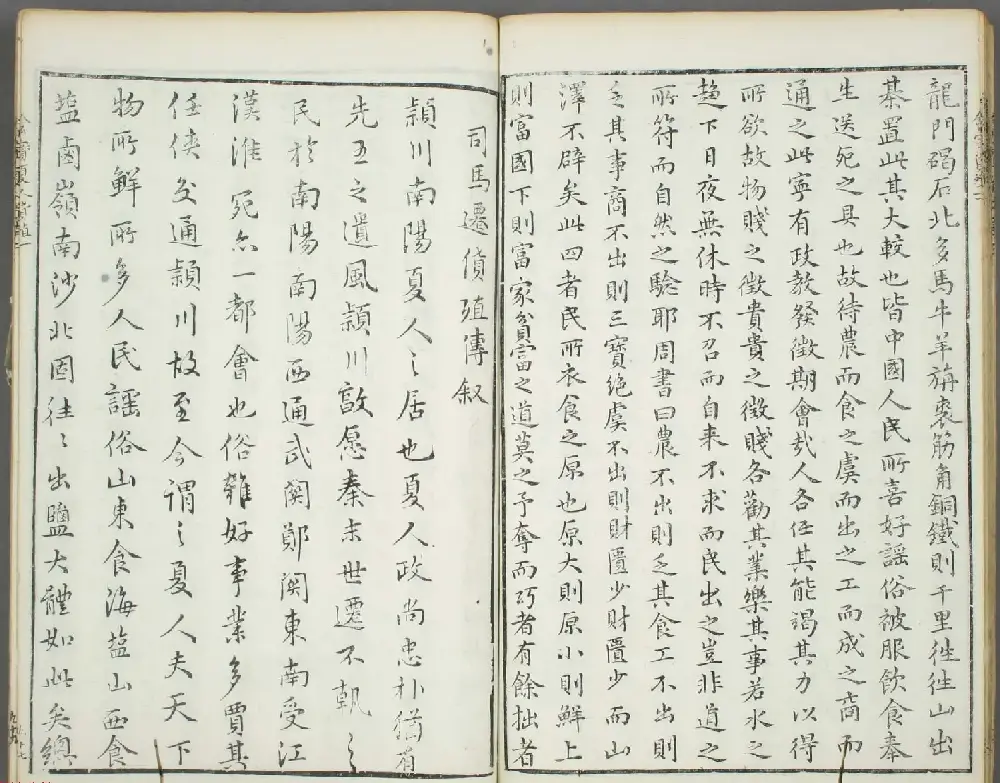 龍門碣石北多馬牛羊旃裘筋角銅鐵則千里徃徃山出
棊置此其大較也皆中國人民所喜好謡俗被服飲食奉
生送死之具也故待農而食之虞而出之工而成之商而
通之此寧有政教發徵期會哉人各任其能竭其力以得
所欲故物賤之徵貴貴之徵賤各勸其業樂其事若水之
趨下日夜無休時不召而自来不求而民出之豈非道之
所符而自然之騐耶周書曰農不出則乏其食工不出則
乏其事商不出則三寶絶虞不出則財匱少財匱少而山
澤不辟矣此四者民所衣食之原也原大則原小則鮮上
則富國下則富家貧富之道莫之予奪而巧者有餘拙者
司馬遷貨殖傳叙
潁川南陽夏人之居也夏人政尚忠朴猶有
先王之遺風潁川敦愿秦末世遷不軌之
民於南陽南陽西通武関鄭関東南受江
漢淮宛亦一都會也俗雜好事業多賈其
任俠交通潁川故至今謂之夏人夫天下
物所鮮所多人民謡俗山東食海塩山西食
塩鹵嶺南沙北固徃〻出鹽大體如此矣總